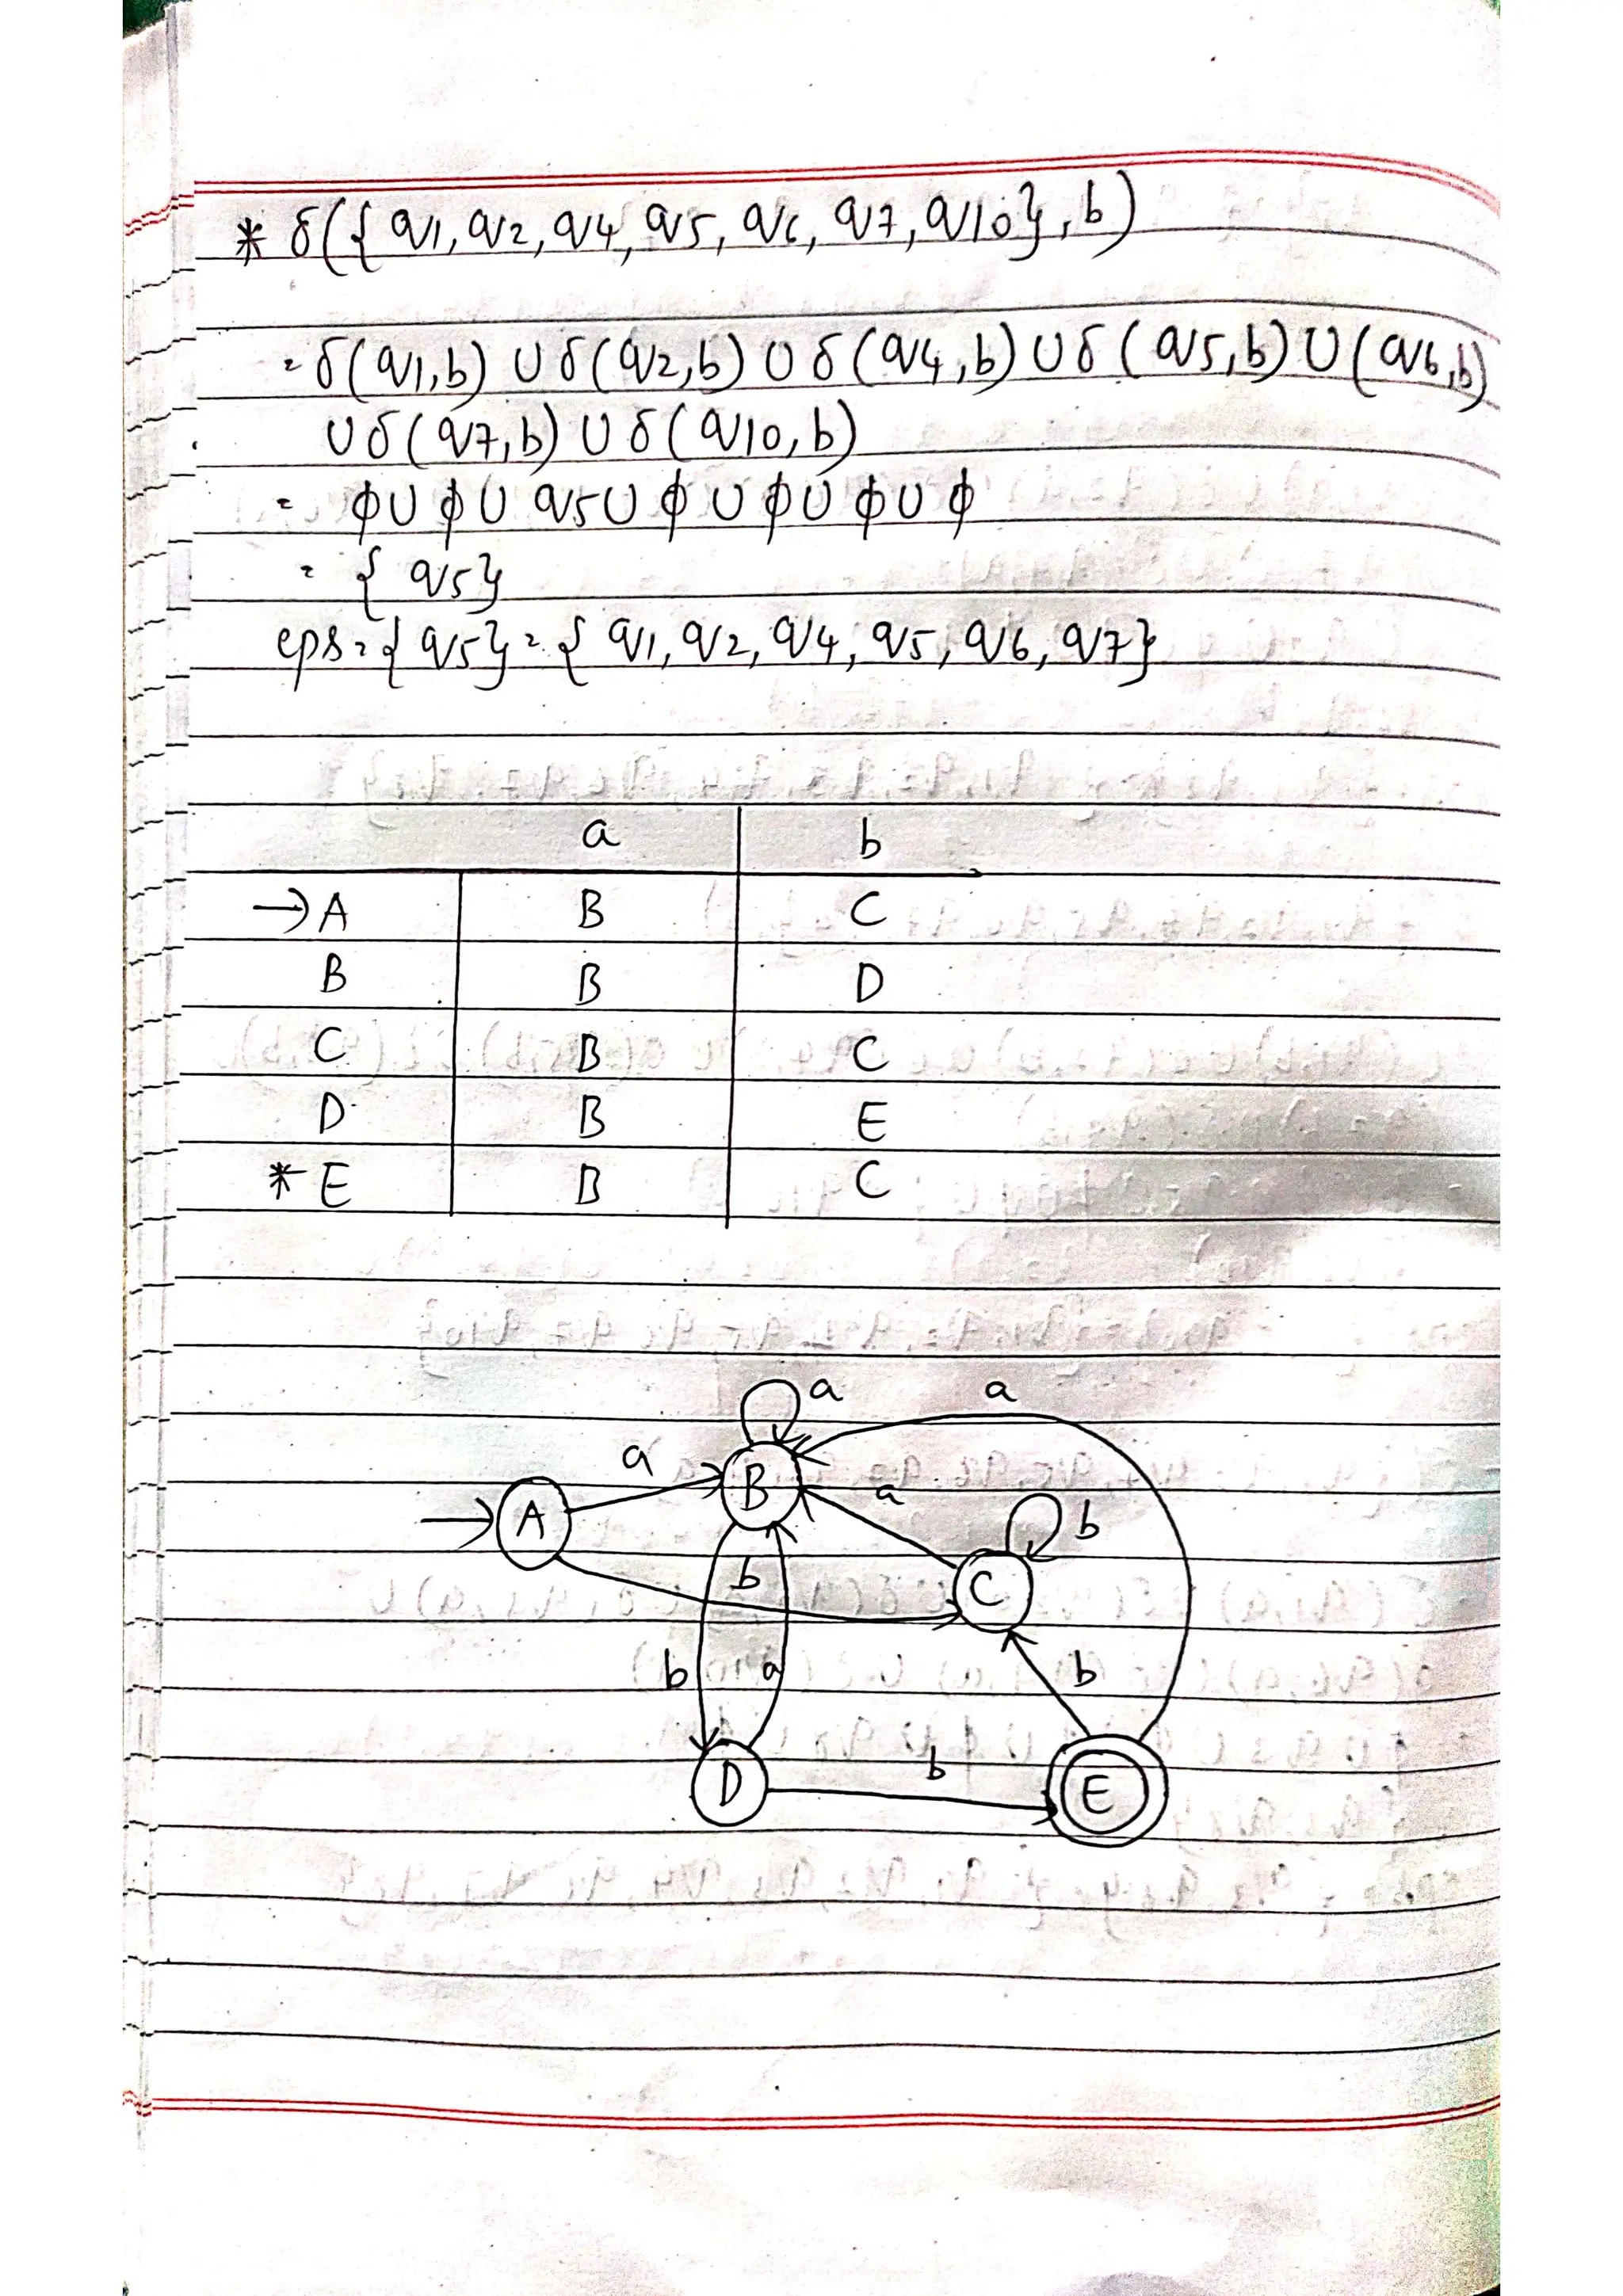 * δ({ q1, q2, q4, q5, q6, q7, q10}, b)
= δ(q1,b) ∪ δ(q2,b) ∪ δ(q4,b) ∪ δ(q5,b) ∪ (q6,b)
∪ δ(q7,b) ∪ δ(q10,b)
= ϕ ∪ ϕ ∪ q5 ∪ ϕ ∪ ϕ ∪ ϕ ∪ ϕ
= { q5}
eps = { q5} = { q1, q2, q4, q5, q6, q7}
a b
→ A B C
B B D
C B C
D B E
* E B C
a a
a B a
→ A C b
b
b a b
D b E